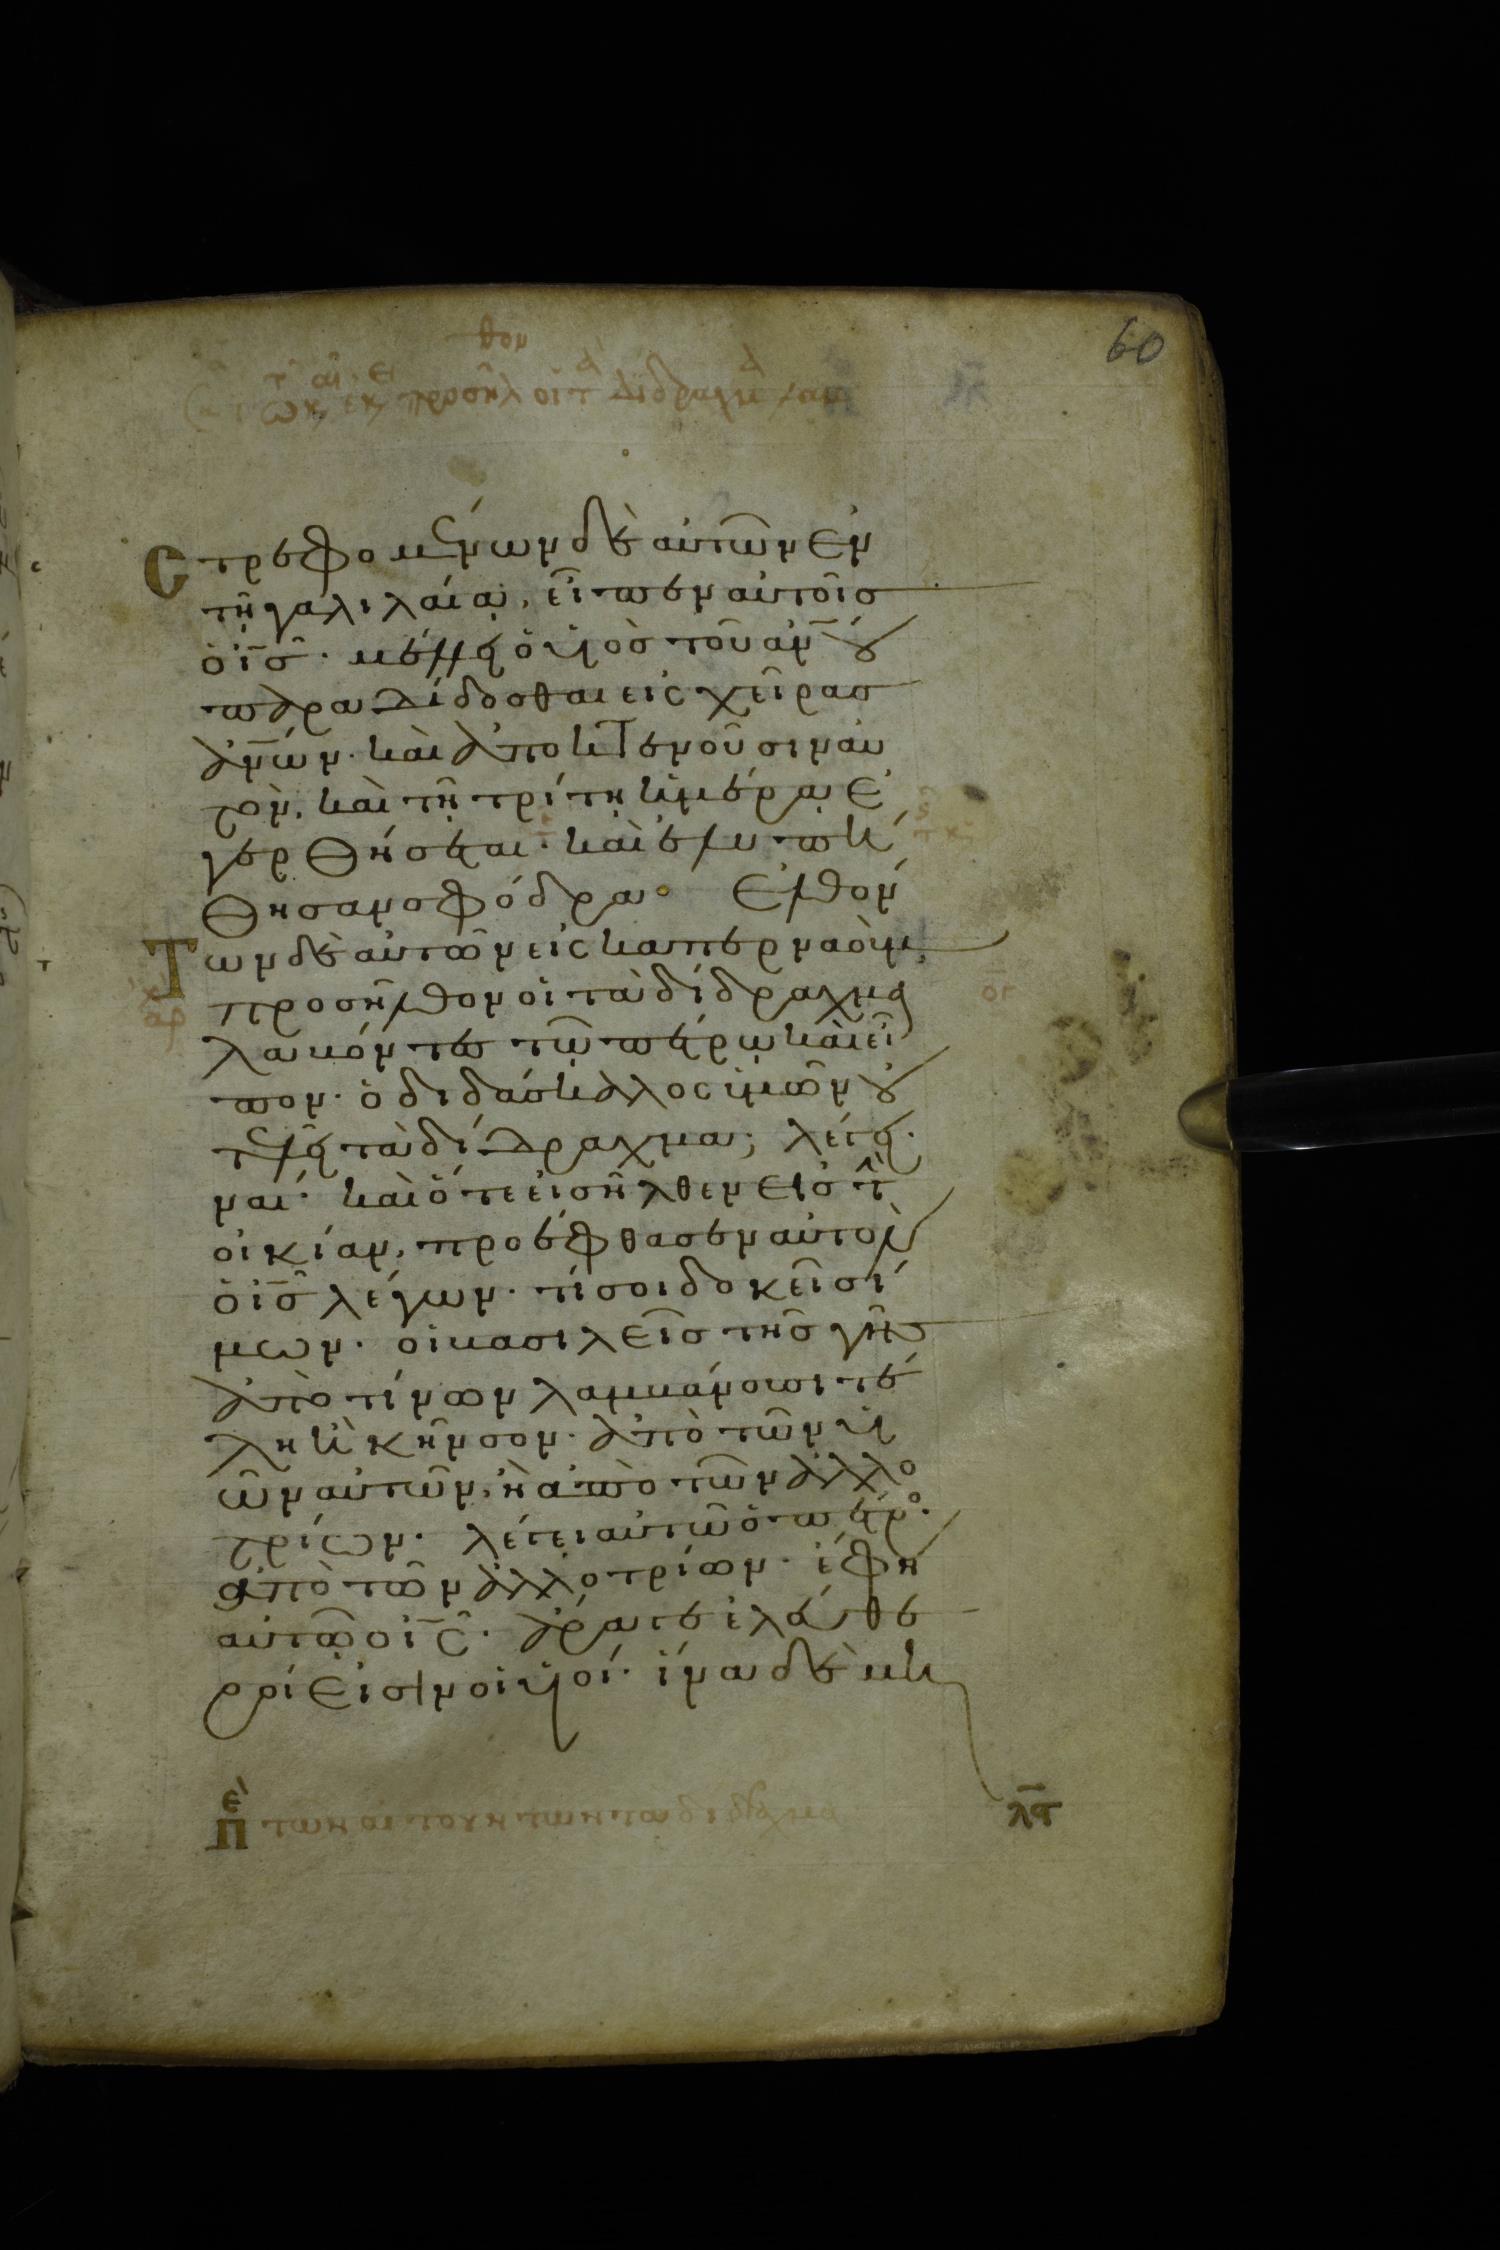 60
τῷ καιρῷ ἐκείνῳ προσῆλθον οἱ τὰ δίδραχμα λαμ
Στρεφομένων δὲ αὐτῶν ἐν
τῇ γαλιλαίᾳ, εἶπεν αὐτοῖσ
ὁ ἰ̅σ̅· μέλλει ὁ υἱὸσ τοῦ ἀν̅ου
παραδίδοσθαι εἰς χεῖρασ
ἀν̅ων· καὶ ἀποκτενοῦσιν αὐ
τὸν, καὶ τῇ τρίτῃ ἡμέρᾳ ἐ
γερθήσεται· καὶ ἐλυπή
θησαν σφόδρα· Ἐλθόν
Των δὲ αὐτῶν εἰς καπερναοὺμ,
προσῆλθον οἱ τὰ δίδραχμα
λαβόντες τῷ πέτρῳ καὶ εἶ
πον· ὁ διδάσκαλος ὑμῶν οὐ
τελεῖ τὰ δίδραχμα; λέγει·
ναί· καὶ ὅτε εἰσῆλθεν εἰσ τὴν
οἰκίαν, προέφθασεν αὐτὸν
ὁ ἰ̅σ̅ λέγων· τί σοι δοκεῖ σί
μων· οἱ βασιλεῖσ τῆσ γῆσ
ἀπὸ τίνων λαμβάνουσι τέ
λη ἢ κῆνσον· ἀπὸ τῶν υἱ
ῶν αὐτῶν, ἢ ἀπὸ τῶν ἀλλο
τρίων· λέγει αὐτῷ ὁ πέτρο·
ἀπὸ τῶν ἀλλοτρίων· ἔφη
αὐτῷ ὁ ἰ̅ς̅· ἄραγε ἐλεύθε
ροί εἰσιν οἱ υἱοί· ἵνα δὲ μὴ
πε τῶν αἰτούντων τὰ δίδραχμα
λς